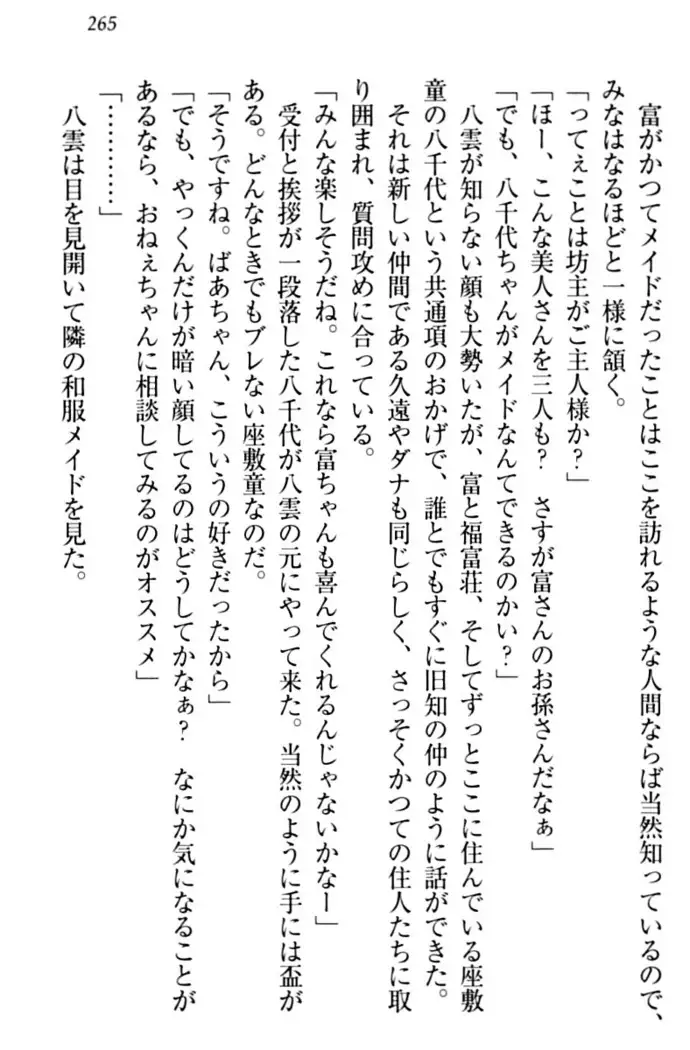 265
富がかつてメイドだったことはここを訪れるような人間ならば当然知っているので、
みなはなるほどと一様に頷く。
「ってぇことは坊主がご主人様か?」
「ほー、こんな美人さんを三人も? さすが富さんのお孫さんだなぁ」
「でも、八千代ちゃんがメイドなんてできるのかい?」
八雲が知らない顔も大勢いたが、富と福富荘、そしてずっとここに住んでいる座敷
童の八千代という共通項のおかげで、誰とでもすぐに旧知の仲のように話ができた。
それは新しい仲間である久遠やダナも同じらしく、さっそくかつての住人たちに取
り囲まれ、質問攻めに合っている。
「みんな楽しそうだね。これなら富ちゃんも喜んでくれるんじゃないかなー」
受付と挨拶が一段落した八千代が八雲の元にやって来た。当然のように手には盃が
ある。どんなときでもブレない座敷童なのだ。
「そうですね。ばあちゃん、こういうの好きだったから」
「でも、やっくんだけが暗い顔してるのはどうしてかなぁ? なにか気になることが
あるなら、おねぇちゃんに相談してみるのがオススメ」
「…………」
八雲は目を見開いて隣の和服メイドを見た。